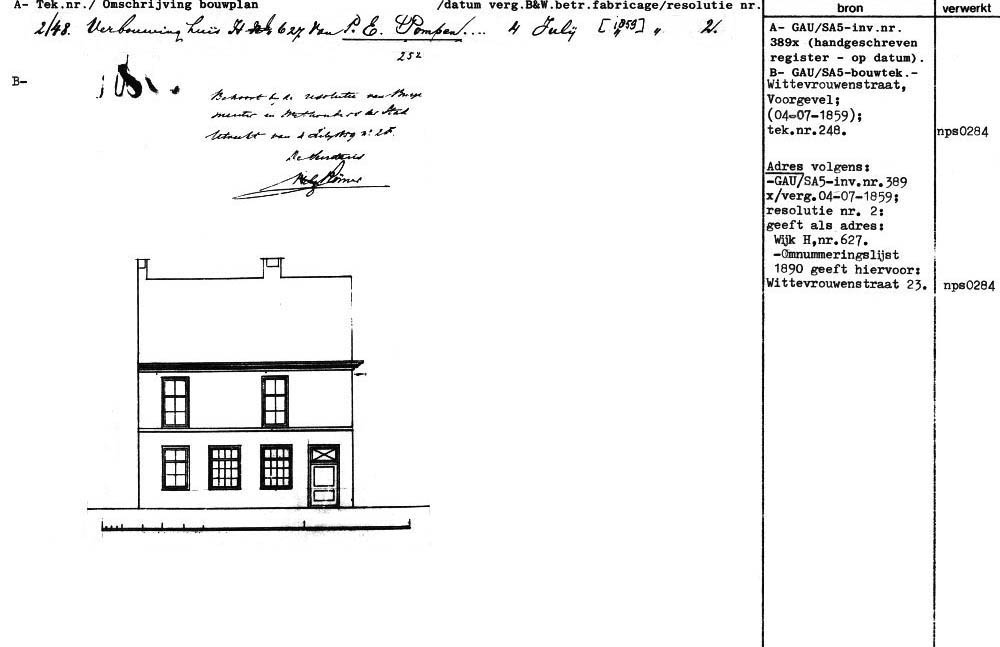 A- Tek.nr./ Omschrijving bouwplan /datum verg.B&W.betr.fabricage/resolutie nr.
bron
verwerkt
2/48. Verbouwing huis H 627 van P. E. Pompen.... 4 July [1859] „ 2.
252
B-
Behoort bij de resolutie van Burge
meester en Wethouders der Stad
Utrecht van 4 July 1859 n° 2
De Secretaris
A- GAU/SA5-inv.nr.
389x (handgeschreven
register - op datum).
B- GAU/SA5-bouwtek.-
Wittevrouwenstraat,
Voorgevel;
(04-07-1859);
tek.nr.248.
nps0284
Adres volgens:
-GAU/SA5-inv.nr.389
x/verg.04-07-1859;
resolutie nr. 2:
geeft als adres:
Wijk H,nr.627.
-Omnummeringslijst
1890 geeft hiervoor:
Wittevrouwenstraat 23.
nps0284